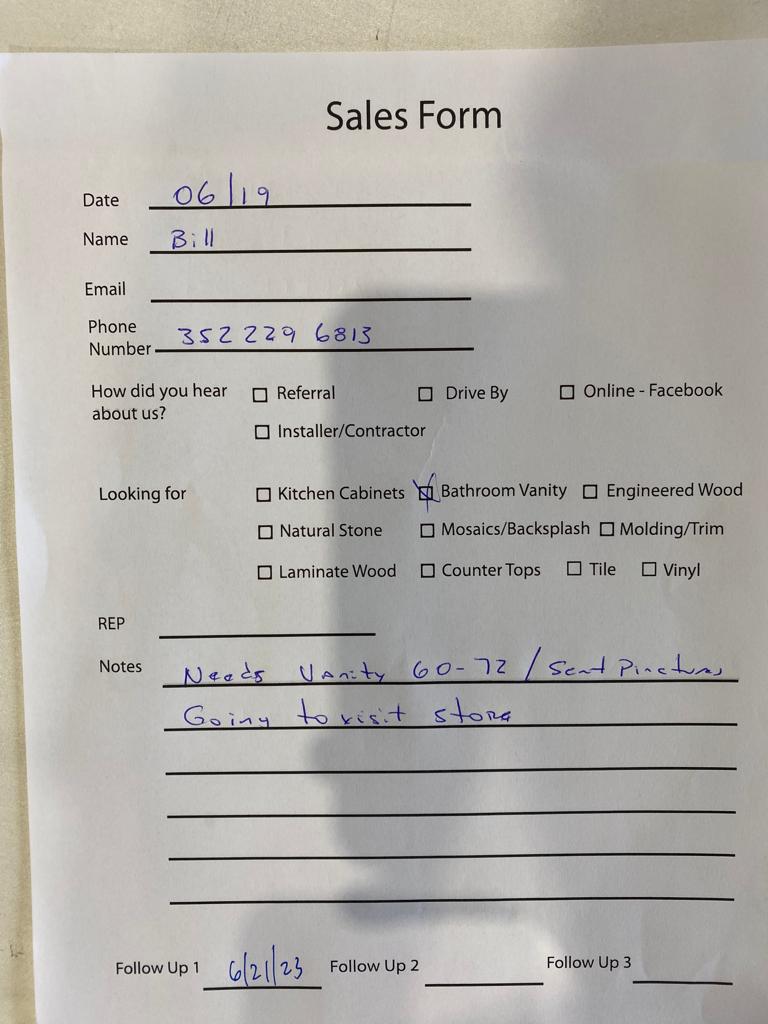 Sales Form
Date 06/19
Name Bill
Email
Phone
Number 352 229 6813
How did you hear
about us?
Referral Drive By Online - Facebook
Installer/Contractor
Looking for Kitchen Cabinets Bathroom Vanity Engineered Wood
Natural Stone Mosaics/Backsplash Molding/Trim
Laminate Wood Counter Tops Tile Vinyl
REP
Notes Needs Vanity 60-72 / Sent Pinctures
Going to visit store
Follow Up 1 6/21/23 Follow Up 2 Follow Up 3